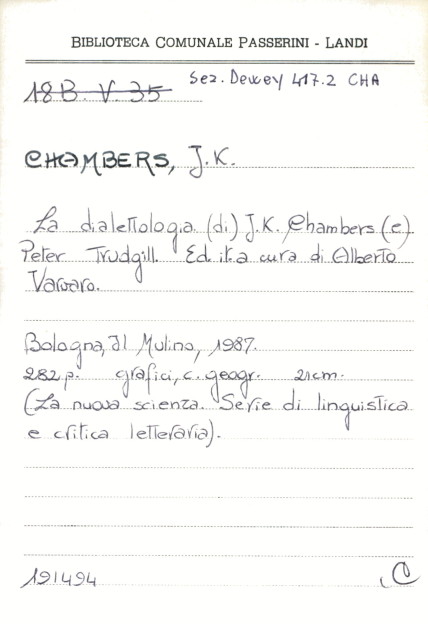 BIBLIOTECA COMUNALE PASSERINI - LANDI
18B. V. 35 Sez. Dewey 417.2 CHA
CHAMBERS, J.K.
La dialettologia (di) J.K. Chambers (e)
Peter Trudgill. Ed. it. a cura di Alberto
Varvaro.
Bologna, Il Mulino, 1987.
282 p. grafici, c. geogr. 21 cm.
(La nuova scienza. Serie di linguistica
e critica letteraria).
191494 C